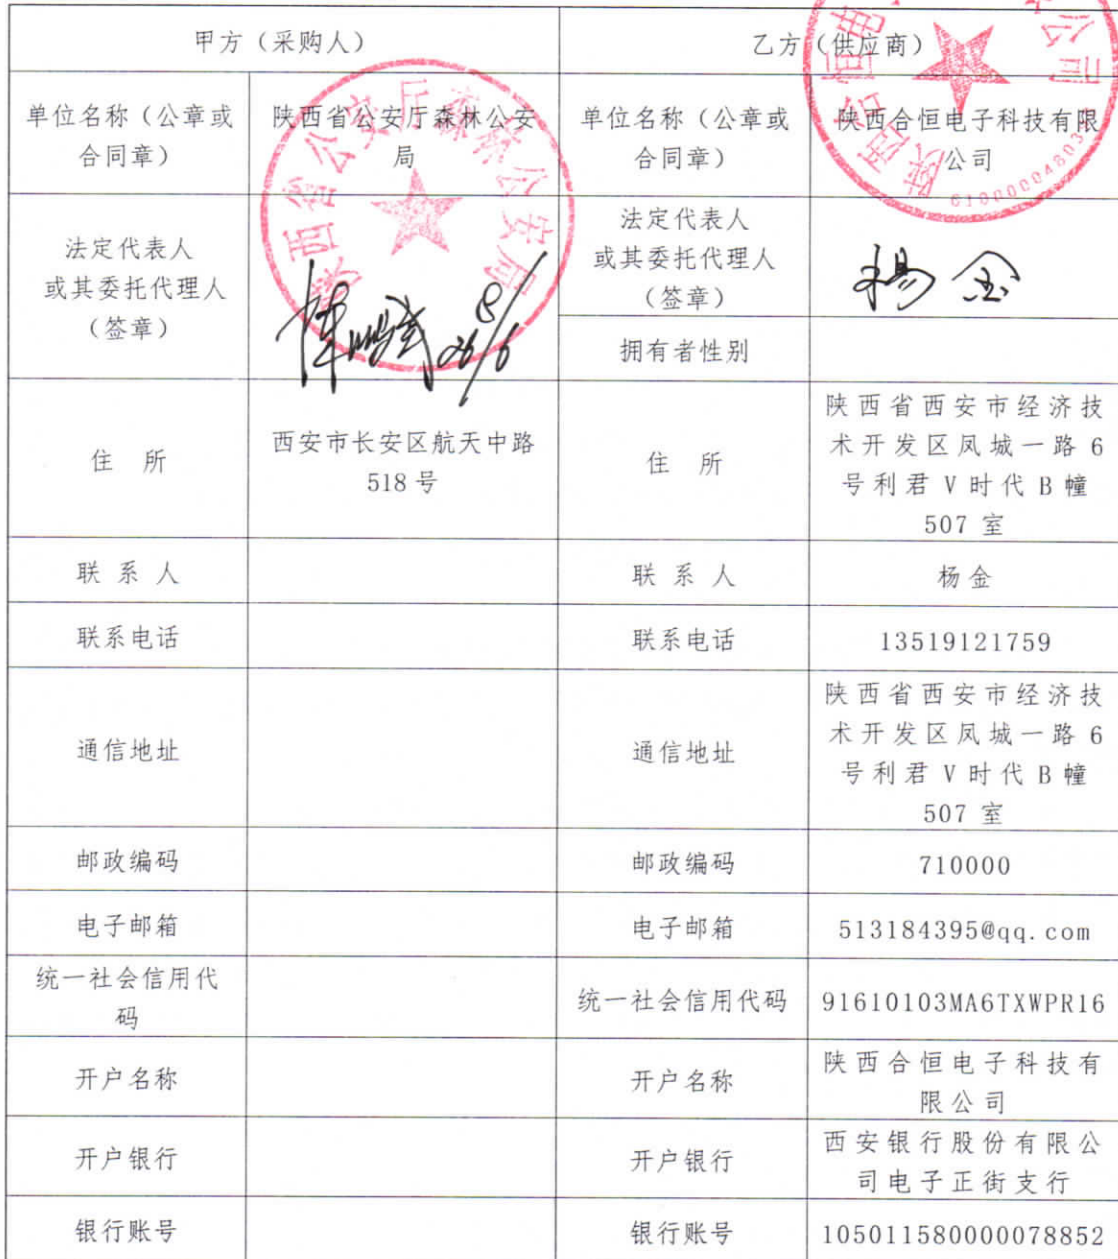 甲方（采购人）
乙方（供应商）
单位名称（公章或
合同章）
陕西省公安厅森林公安
局
单位名称（公章或
合同章）
陕西合恒电子科技有限
公司
陕西省公安厅森林公安局
法定代表人
或其委托代理人
（签章）
法定代表人
或其委托代理人
（签章）
杨金
拥有者性别
住 所
西安市长安区航天中路
518号
住 所
陕西省西安市经济技
术开发区凤城一路 6
号利君 V 时代 B 幢
507 室
联 系 人
联 系 人
杨金
联系电话
联系电话
13519121759
通信地址
通信地址
陕西省西安市经济技
术开发区凤城一路 6
号利君 V 时代 B 幢
507 室
邮政编码
邮政编码
710000
电子邮箱
电子邮箱
513184395@qq.com
统一社会信用代
码
统一社会信用代码
91610103MA6TXWPR16
开户名称
开户名称
陕西合恒电子科技有
限公司
开户银行
开户银行
西安银行股份有限公
司电子正街支行
银行账号
银行账号
105011580000078852